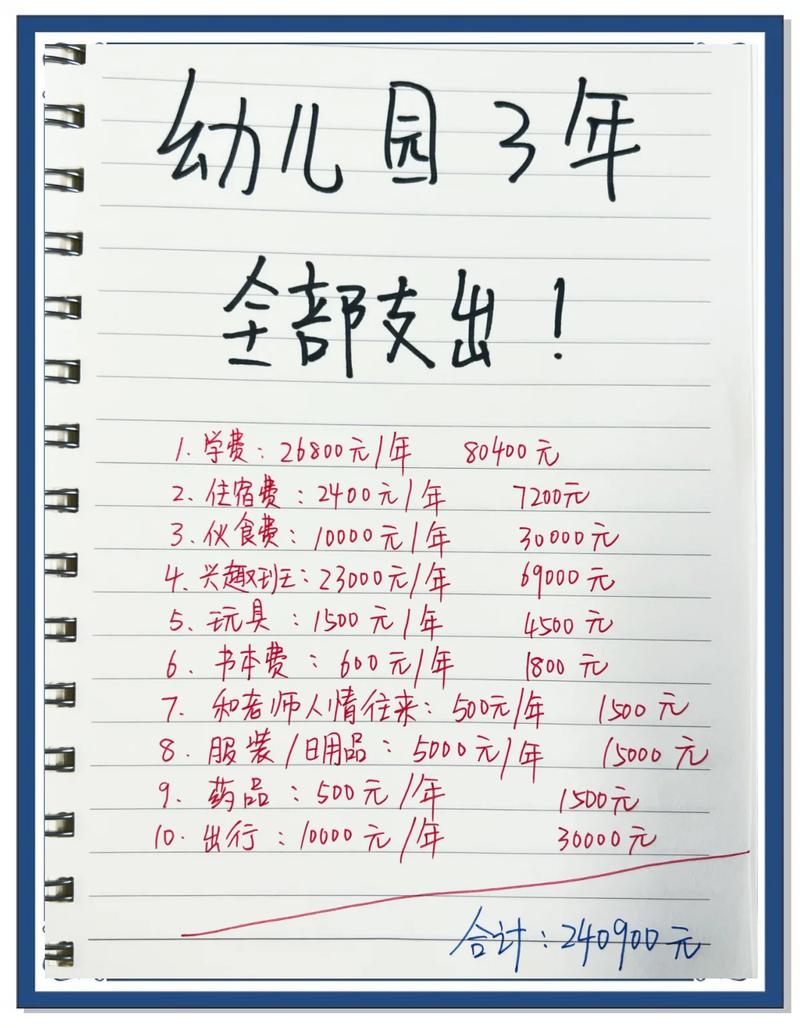 幼儿园3年
全部支出！
1. 学费：26800元/年 80400元
2. 住宿费：2400元/年 7200元
3. 伙食费：10000元/年 30000元
4. 兴趣班：23000元/年 69000元
5. 玩具：1500元/年 4500元
6. 书本费：600元/年 1800元
7. 和老师人情往来：500元/年 1500元
8. 服装/日用品：5000元/年 15000元
9. 药品：500元/年 1500元
10. 出行：10000元/年 30000元
合计：240900元